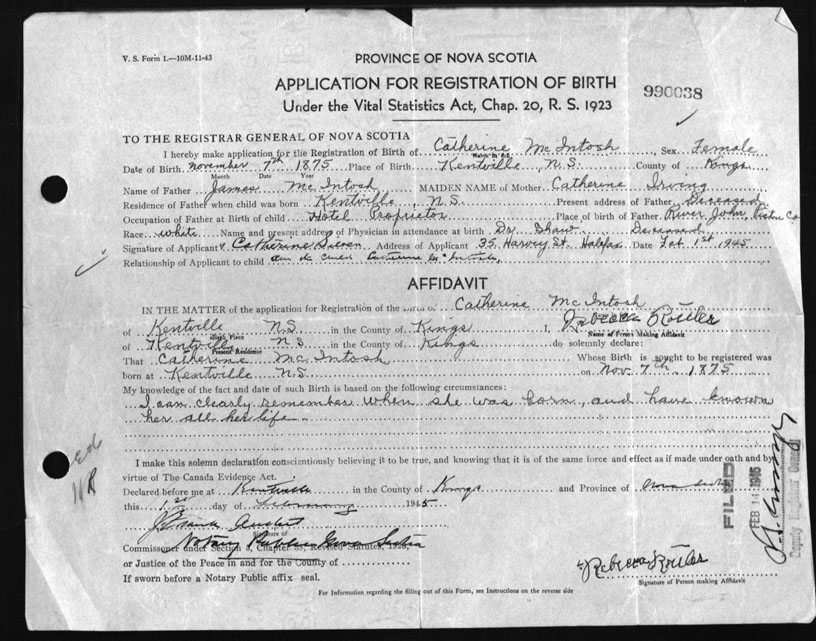 V. S. Form 1.—10M-11-43
PROVINCE OF NOVA SCOTIA
APPLICATION FOR REGISTRATION OF BIRTH
990038
Under the Vital Statistics Act, Chap. 20, R. S. 1923
TO THE REGISTRAR GENERAL OF NOVA SCOTIA
I hereby make application for the Registration of Birth of Catherine McIntosh, Sex Female
Name in full
Date of Birth November 7th 1875 Place of Birth Kentville, N.S. County of Kings
Month Date Year
Name of Father James McIntosh, MAIDEN NAME of Mother Catherine Irving
Residence of Father when child was born Kentville, N.S. Present address of Father Deceased
Occupation of Father at Birth of child Hotel Proprietor Place of birth of Father River John, Pictou Co
Race white Name and present address of Physician in attendance at birth Dr Shaw Deceased
Signature of Applicant Catherine Address of Applicant 35 Harvey St. Halifax Date Feb 1st 1945
Relationship of Applicant to child
AFFIDAVIT
IN THE MATTER of the application for Registration of the Birth of Catherine McIntosh
of Kentville N.S. in the County of Kings I, Rebecca
Birth Place Name of Person Making Affidavit
of Kentville N S in the County of Kings do solemnly declare:
Present Residence
That Catherine McIntosh Whose Birth is sought to be registered was
born at Kentville N.S. on Nov 7th, 1875
My knowledge of the fact and date of such Birth is based on the following circumstances:
I can clearly remember when she was born, and have known
her all her life
I make this solemn declaration conscientiously believing it to be true, and knowing that it is of the same force and effect as if made under oath and by
virtue of The Canada Evidence Act.
Declared before me at Kentville in the County of Kings and Province of Nova Scotia
this 1st day of February 1945
Signature of
Notary Public Nova Scotia
Commissioner under Section 3, Chapter 53, Revised Statutes, 1923,
or Justice of the Peace in and for the County of
If sworn before a Notary Public affix seal.
Rebecca
Signature of Person making Affidavit
For Information regarding the filling out of this Form, see Instructions on the reverse side
FILED
FEB 14 1945